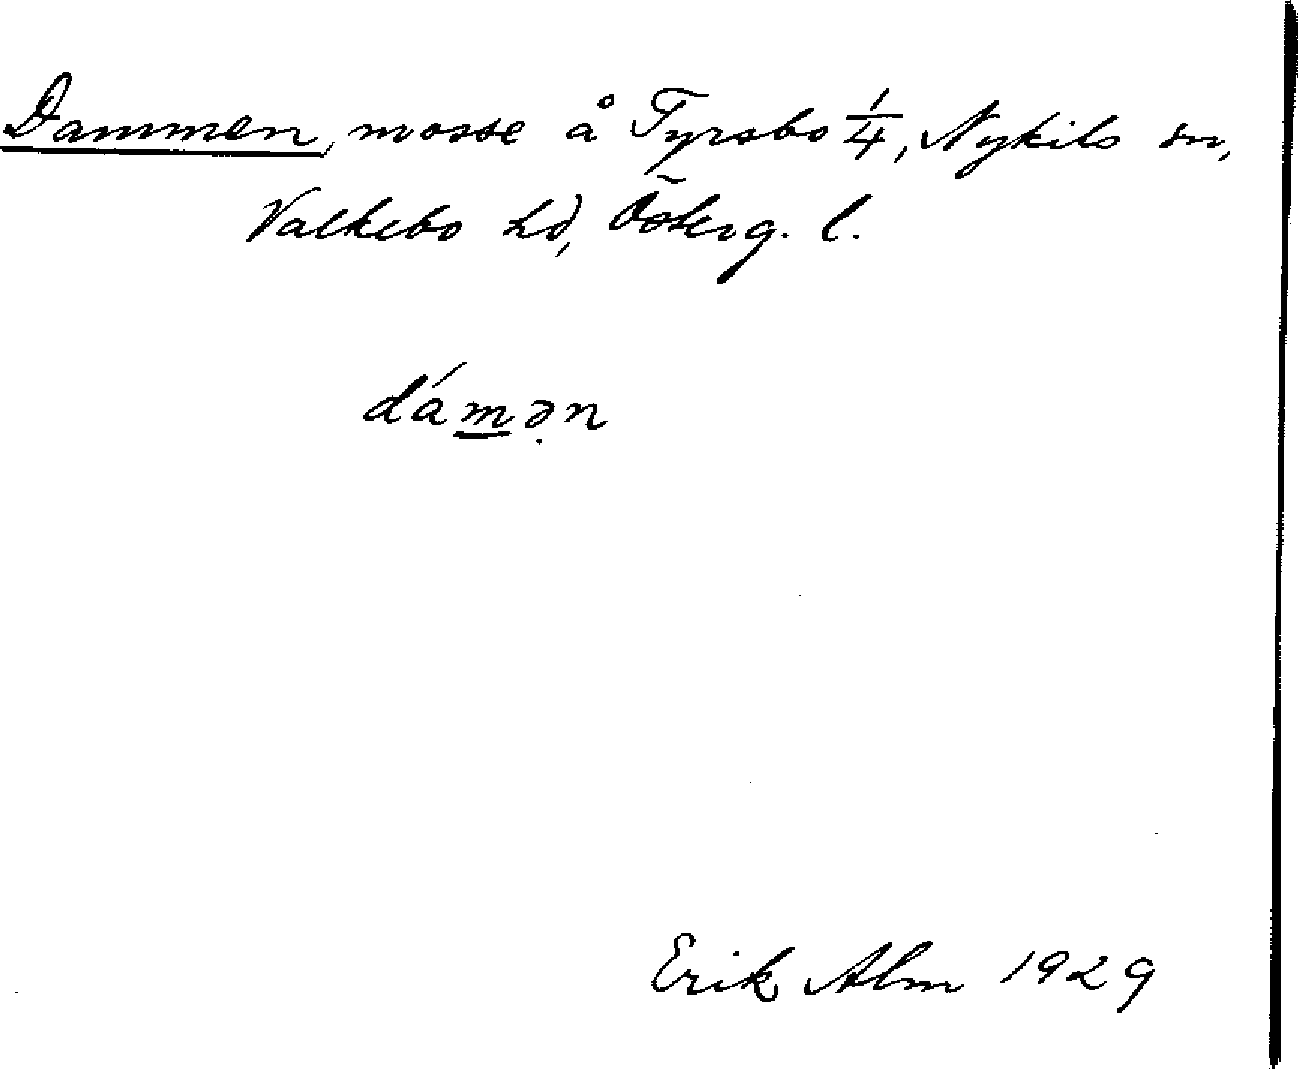 Dammen, mosse å Tyrsbo 1/4, Nykils sn,
Valkebo hd, Österg. l.
dámə̣n
Erik Alm 1929